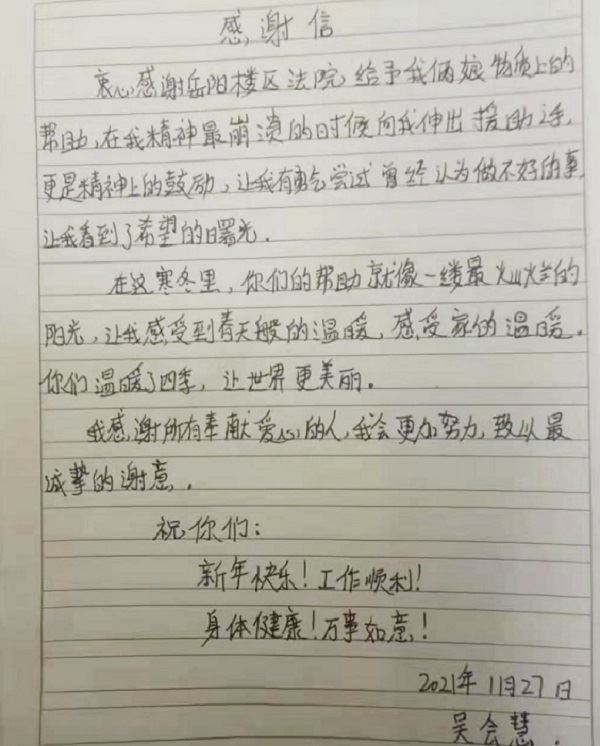 感谢信
衷心感谢岳阳楼区法院,给予我俩娘物质上的
帮助,在我精神最崩溃的时候向我伸出援助之手,
更是精神上的鼓励,让我有勇气尝试曾经认为做不好的事,
让我看到了希望的曙光.
在这寒冬里,你们的帮助就像一缕最灿烂的
阳光,让我感受到春天般的温暖,感受家的温暖。
你们温暖了四季,让世界更美丽。
我感谢所有奉献爱心的人,我会更加努力,致以最
诚挚的谢意.
祝你们:
新年快乐!工作顺利!
身体健康!万事如意!
2021年11月27日
吴会慧.